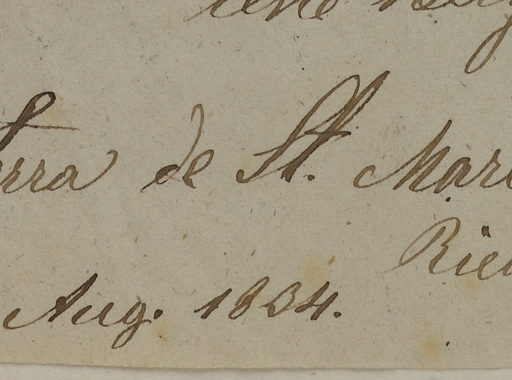 erra de St. Mar
Rie
Aug. 1834.